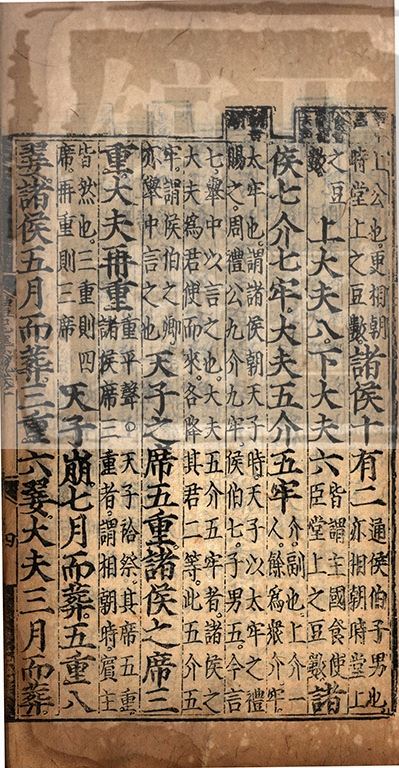 上公也更相朝
時堂上之豆數
諸侯十有二
通侯伯子男也
亦相朝時堂上
之豆
數
上大夫八下大夫六
皆謂主國食使
臣堂上之豆數
諸
侯七介七牢大夫五介五牢
介副也上介一
人餘爲衆介牢
太牢也謂諸侯朝天子時天子以太牢之禮
賜之周禮公九介九牢侯伯七子男五今言
七舉中以言之也大夫五介五牢者諸侯之
大夫爲君使而來各降其君二等此五介五
牢謂侯伯之卿
亦舉中言之也
天子之席五重諸侯之席三
重大夫再重
重平聲○天子祫祭其席五重
諸侯席三重者謂相朝時賓主
皆然也三重則四
席再重則三席
天子崩七月而葬五重八
翣諸侯五月而葬三重六翣大夫三月而葬